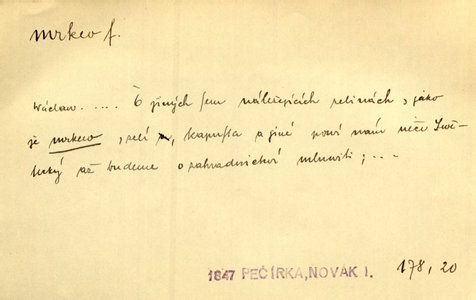 mrkev f.
Václav. ... O jiných sem náležejících zelinách, jako
je mrkev, zelí, kapusta a jiné poví nám něco
až budeme o zahradnictví mluviti; ...
1847 PEČÍRKA, NOVÁK I. 178, 20